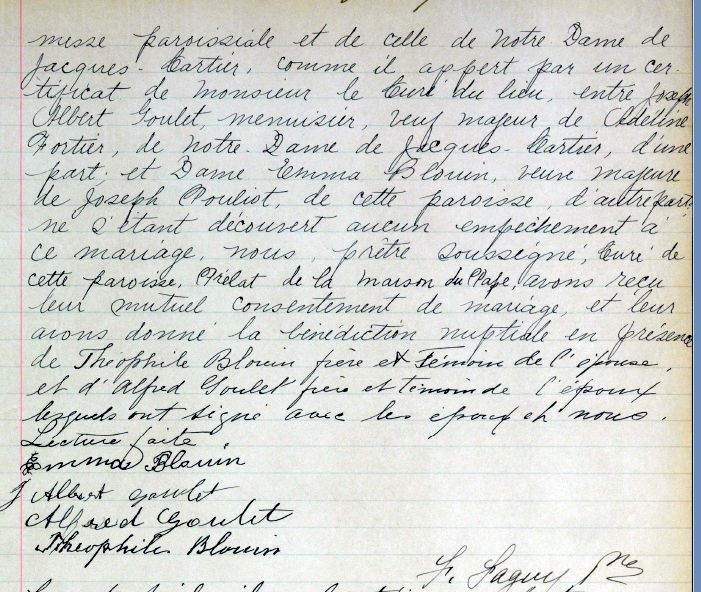 messe paroissiale et de celle de Notre Dame de
Jacques-Cartier, comme il appert par un cer-
tificat de Monsieur le Curé du lieu, entre Joseph
Albert Goulet, menuisier, veuf majeur de Adeline
Fortier, de Notre-Dame de Jacques-Cartier, d'une
part, et Dame Emma Blouin, veuve majeure
de Joseph Pouliot, de cette paroisse, d'autre part,
ne s'étant découvert aucun empêchement à
ce mariage, nous, prêtre soussigné, Curé de
cette paroisse, Prélat de la Maison du Pape, avons reçu
leur mutuel consentement de mariage, et leur
avons donné la bénédiction nuptiale en présence
de Théophile Blouin frère et témoin de l'épouse,
et d'Alfred Goulet frère et témoin de l'époux
lesquels ont signé avec les époux et nous.
Lecture faite.
Emma Blouin
J Albert Goulet
Alfred Goulet
Theophile Blouin
F. Faguy Ptre